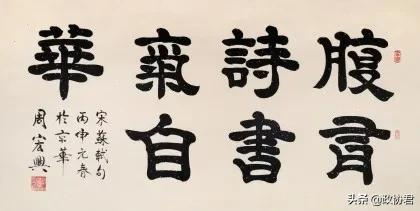 腹有
詩書
氣自
華
宋蘇軾句
丙申元春
於京華
周宏興
头条 @政协君